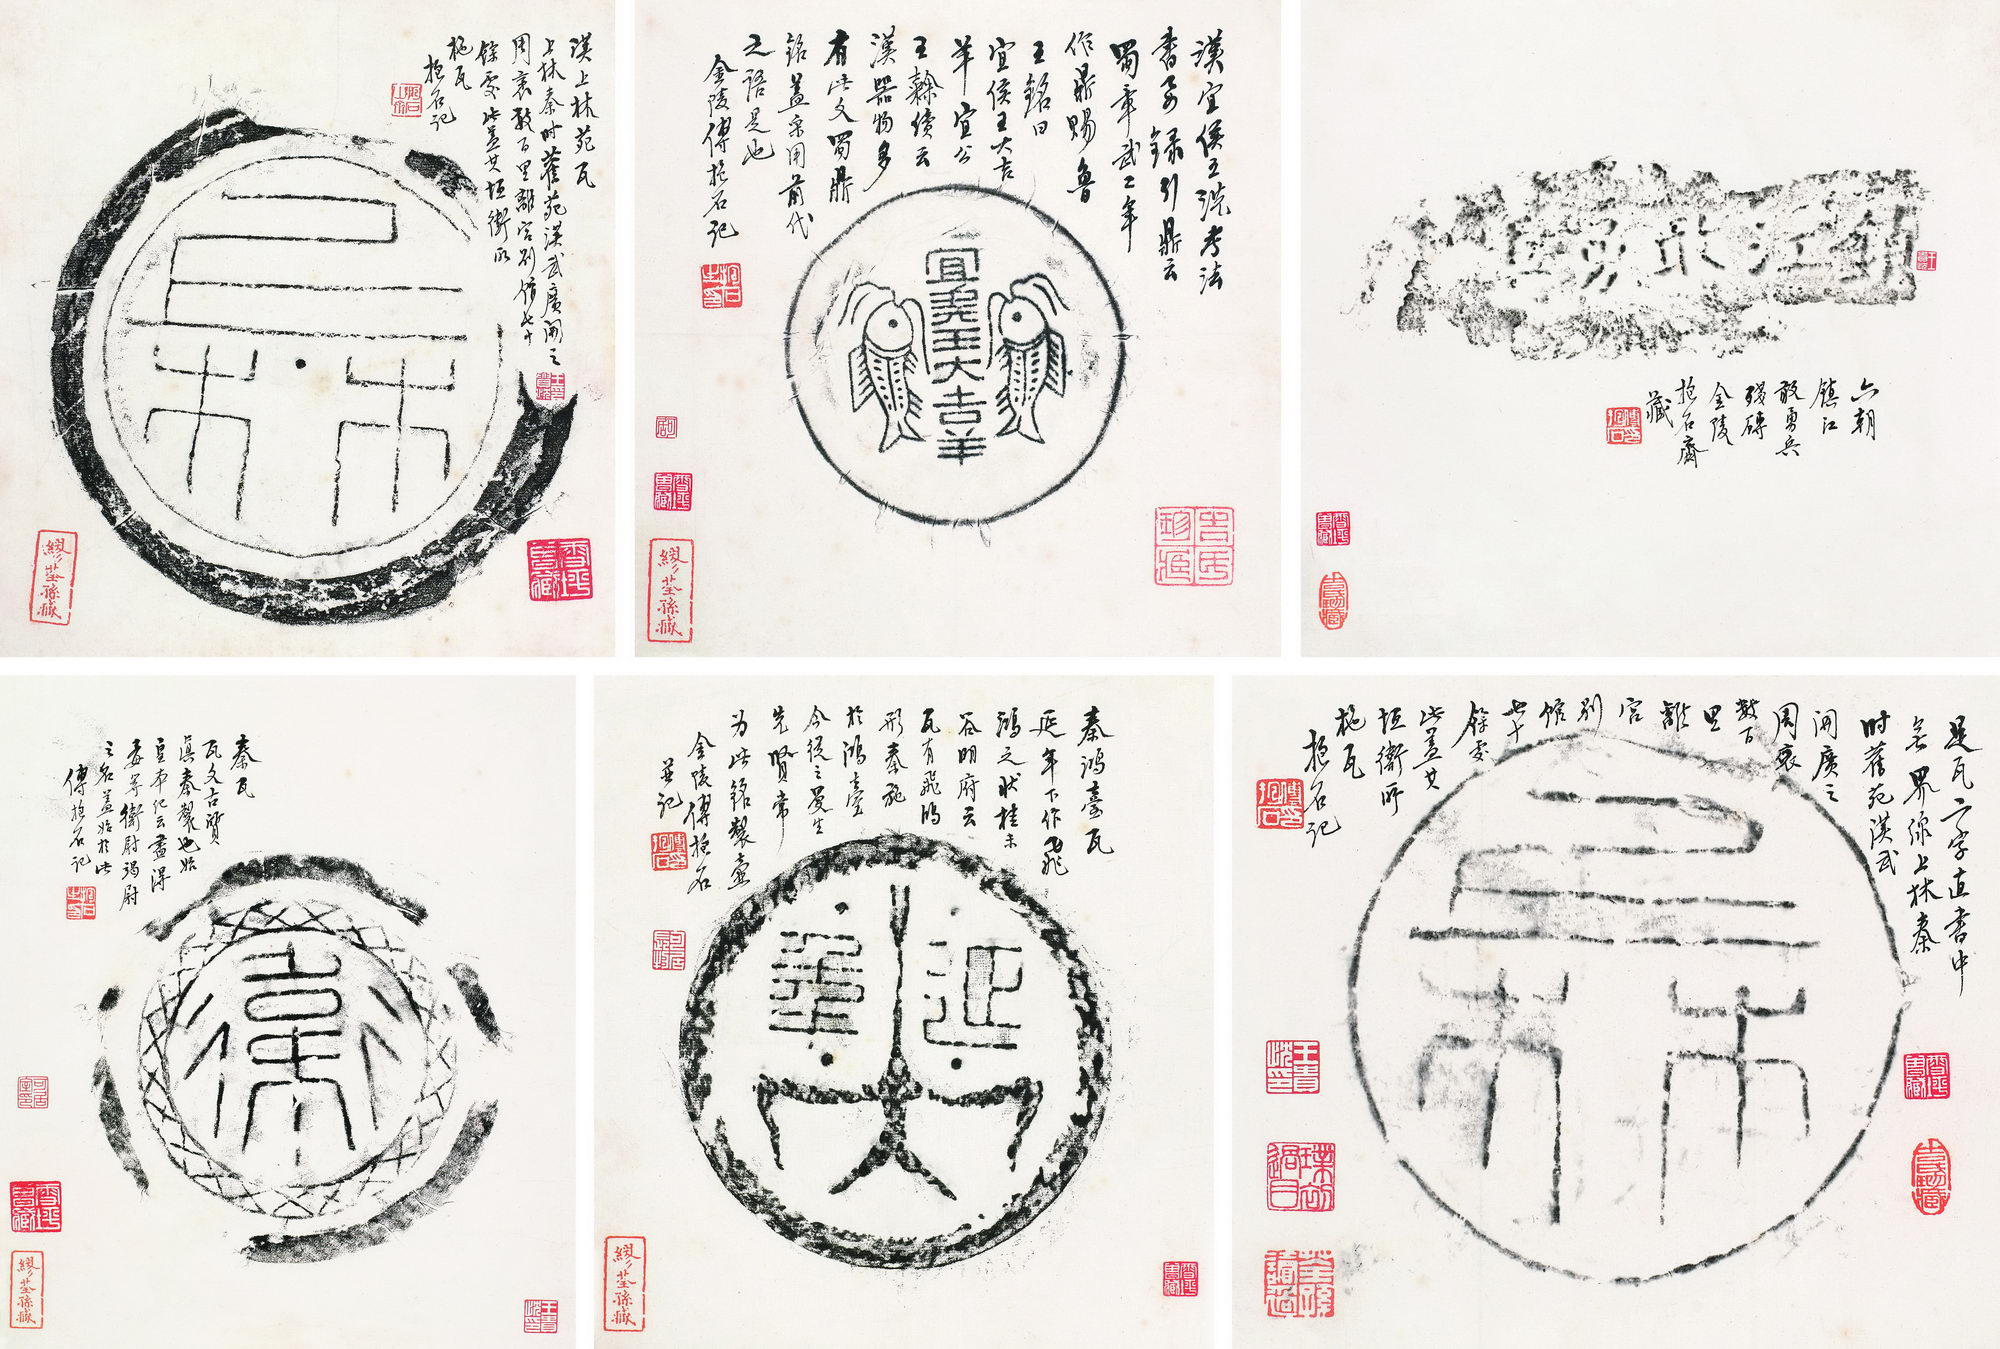 漢上林苑瓦
上林秦時舊苑漢武廣開之
周袤數百里離宮別館七十
餘處此蓋其垣衛所
施瓦
抱石記
上林
繆荃孫藏
漢宜侯王洗考法
書要錄引鼎云
蜀章武二年
作鼎賜魯
王銘曰
宜侯王大吉
羊宜公
王繇續云
漢器物多
有此文蜀鼎
銘蓋采用前代
之語是也
金陵傅抱石記
宜侯王大吉羊
繆荃孫藏
六朝
鎮江
敢勇兵
殘磚
金陵
抱石齋
藏
秦瓦
瓦文古質
真秦製也始
皇本紀云盡得
毐等衛尉竭尉
之名蓋始於此
傅抱石記
繆荃孫藏
秦鴻臺瓦
延年下作飛
鴻之狀桂未
谷明府云
瓦有飛鴻
形秦施
於鴻臺
今從之曼生
先賢常
為此銘製壺
金陵傅抱石
并記
延年
繆荃孫藏
是瓦二字直書中
無界線上林秦
時舊苑漢武
開廣之
周袤
數百
里
離
宮
別
館
七十
餘處
此蓋其
垣衛所
施瓦
抱石記
上林